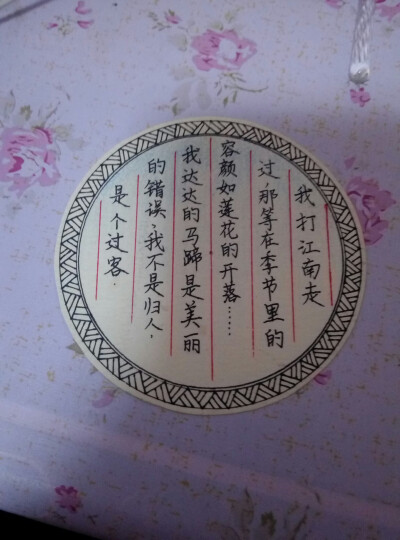 我打江南走
过,那等在季节里的
容颜如莲花的开落……
我达达的马蹄是美丽
的错误,我不是归人,
是个过客.